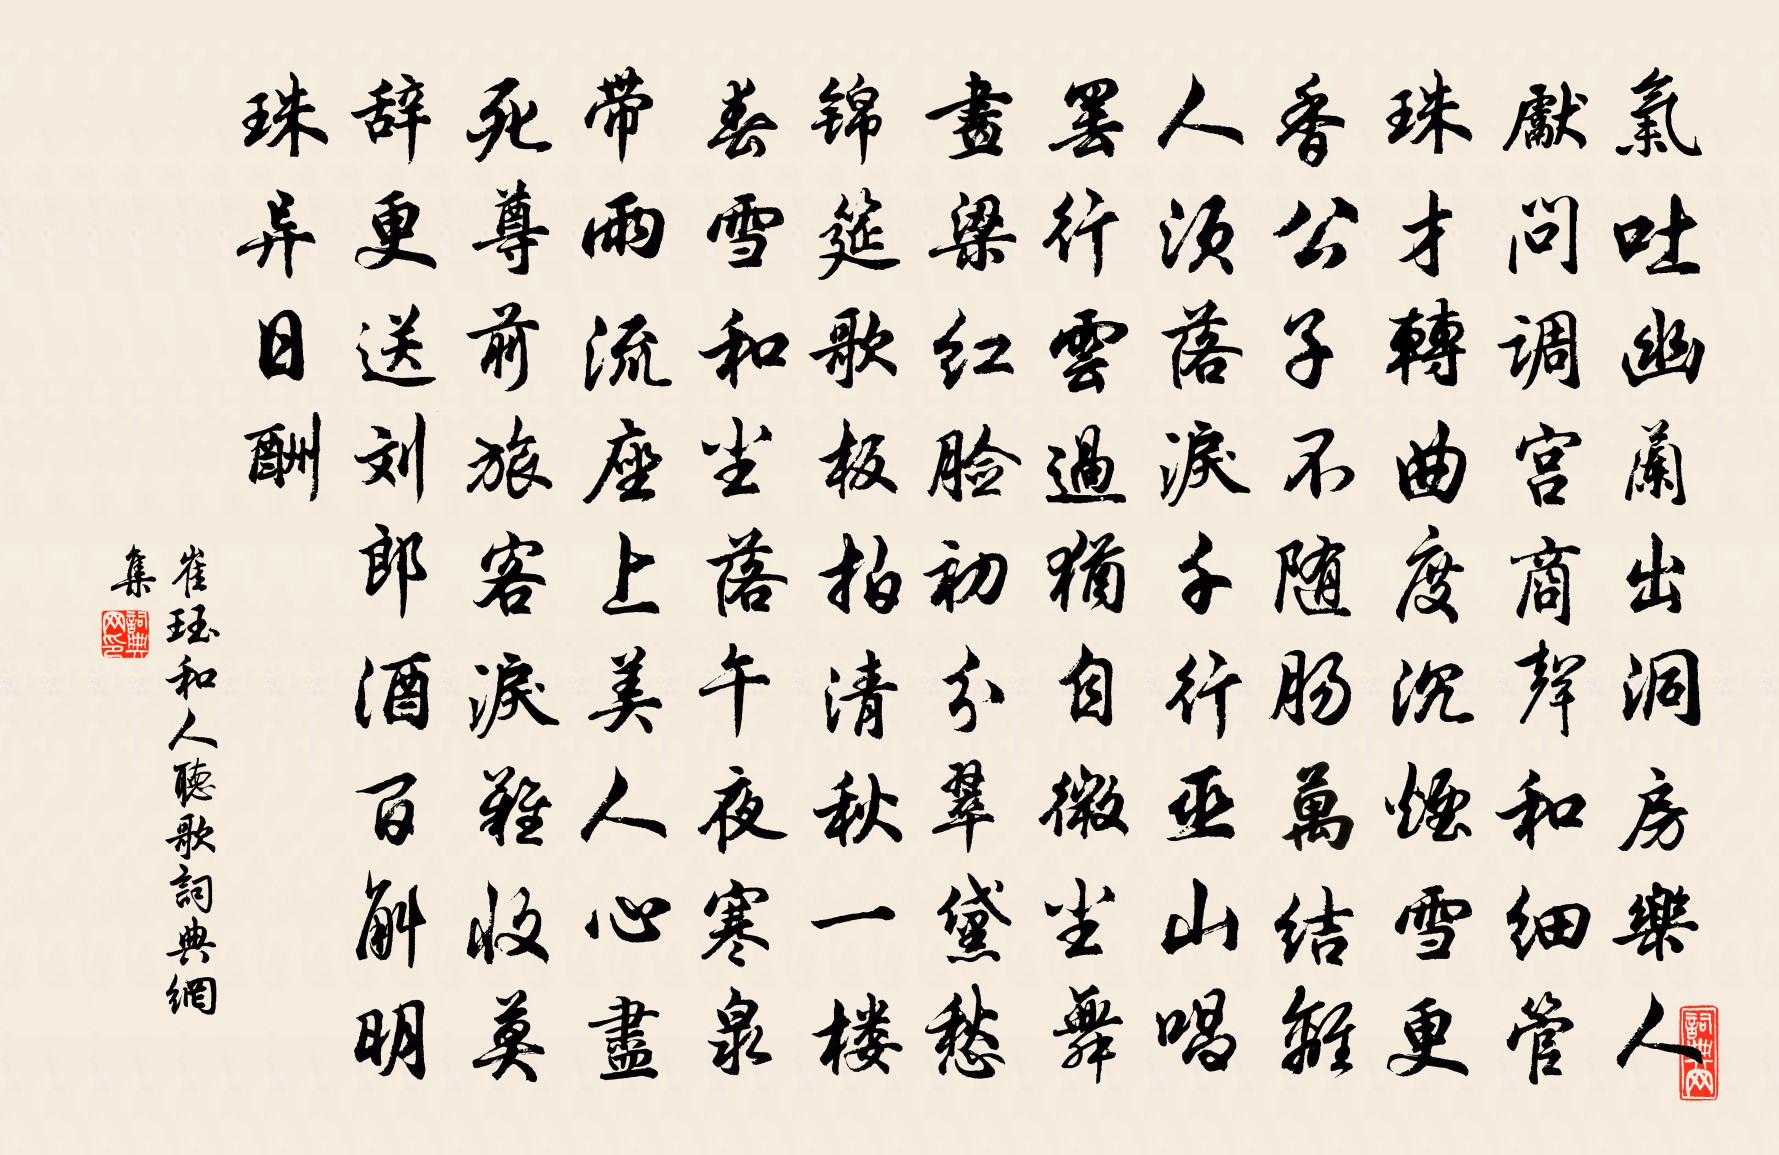 氣吐幽蘭出洞房樂人
獻問調宫商聲和細管
珠才轉曲度沉煙雪更
香公子不随肠萬结離
人须落淚千行巫山唱
罢行雲過猶自微尘舞
畫梁红脸初分翠黛愁
锦筵歌板拍清秋一楼
春雪和尘落午夜寒泉
带雨流座上美人心盡
死尊前旅客淚難收莫
辞更送刘郎酒百斛明
珠异日酬
崔珏和人聽歌詞典網
集
詞典网
詞典网印